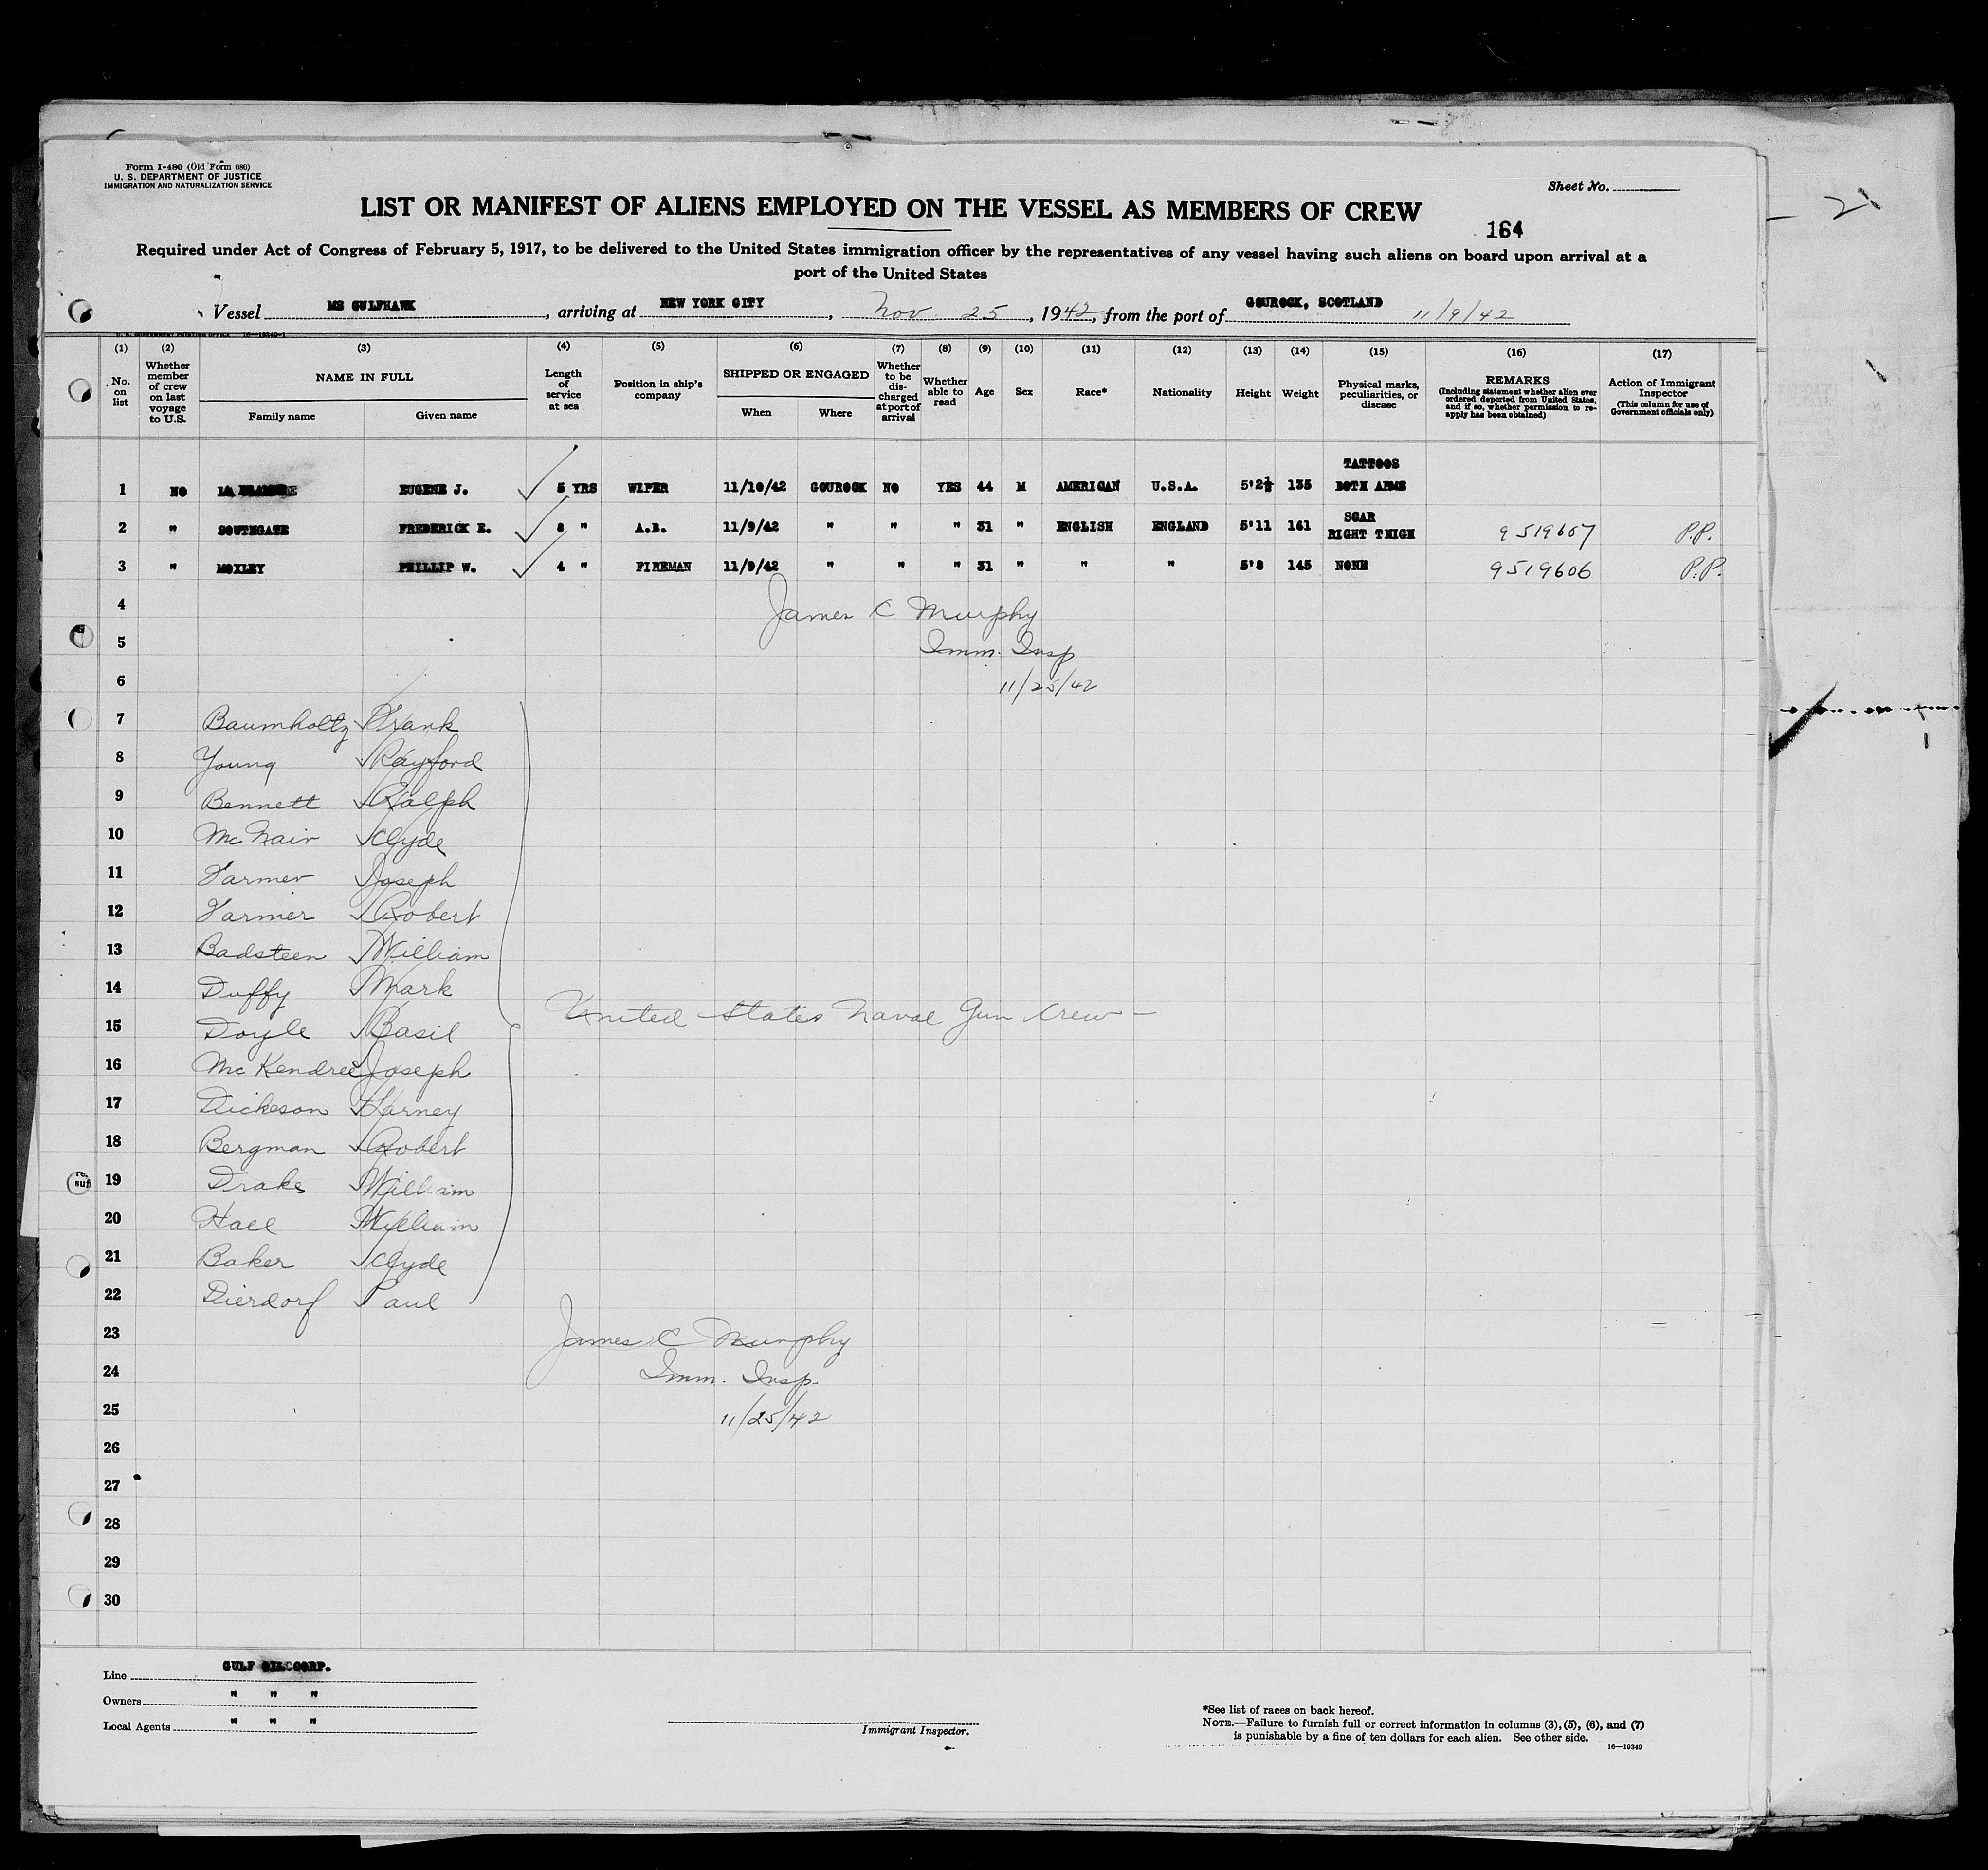 Form I-480 (Old Form 680)
U. S. DEPARTMENT OF JUSTICE
IMMIGRATION AND NATURALIZATION SERVICE
Sheet No.
LIST OR MANIFEST OF ALIENS EMPLOYED ON THE VESSEL AS MEMBERS OF CREW
164
Required under Act of Congress of February 5, 1917, to be delivered to the United States immigration officer by the representatives of any vessel having such aliens on board upon arrival at a
port of the United States
Vessel MS GULFHAWK, arriving at NEW YORK CITY, Nov 25, 1942, from the port of GOUROCK, SCOTLAND 11/9/42
U. S. GOVERNMENT PRINTING OFFICE 16—19349-1
(1) (2) (3) (4) (5) (6) (7) (8) (9) (10) (11) (12) (13) (14) (15) (16) (17)
No. on list
Whether member of crew on last voyage to U.S.
NAME IN FULL
Family name Given name
Length of service at sea
Position in ship's company
SHIPPED OR ENGAGED
When Where
Whether to be discharged at port of arrival
Whether able to read
Age
Sex
Race*
Nationality
Height
Weight
Physical marks, peculiarities, or disease
REMARKS
(Including statement whether alien ever ordered deported from United States, and if so, whether permission to re-apply has been obtained)
Action of Immigrant Inspector
(This column for use of Government officials only)
1 NO LA EUGENE J. 5 YRS WIPER 11/10/42 GOUROCK NO YES 44 M AMERICAN U.S.A. 5'2½ 135 TATTOOS BOTH ARMS
2 " SOUTHGATE FREDERICK E. 8 " A.B. 11/9/42 " " " 31 " ENGLISH ENGLAND 5'11 161 SCAR RIGHT THIGH 9519607 P.P.
3 " MOXLEY PHILLIP W. 4 " FIREMAN 11/9/42 " " " 31 " " " 5'8 145 NONE 9519606 P.P.
4 James C Murphy
5 Imm. Insp
6 11/25/42
7 Baumholtz Frank
8 Young Rayford
9 Bennett Ralph
10 McNair Clyde
11 Farmer Joseph
12 Farmer Robert
13 Badsteen William
14 Duffy Mark
United States Naval Gun Crew —
15 Doyle Basil
16 McKendree Joseph
17 Dickeson Harney
18 Bergman Robert
19 Drake William
20 Hall William
21 Baker Clyde
22 Dierdorf Paul
23 James C Murphy
24 Imm. Insp.
25 11/25/42
26
27
28
29
30
Line GULF OIL CORP.
Owners " " "
Local Agents " " "
Immigrant Inspector.
*See list of races on back hereof.
NOTE.—Failure to furnish full or correct information in columns (3), (5), (6), and (7)
is punishable by a fine of ten dollars for each alien. See other side.
16—19349
2